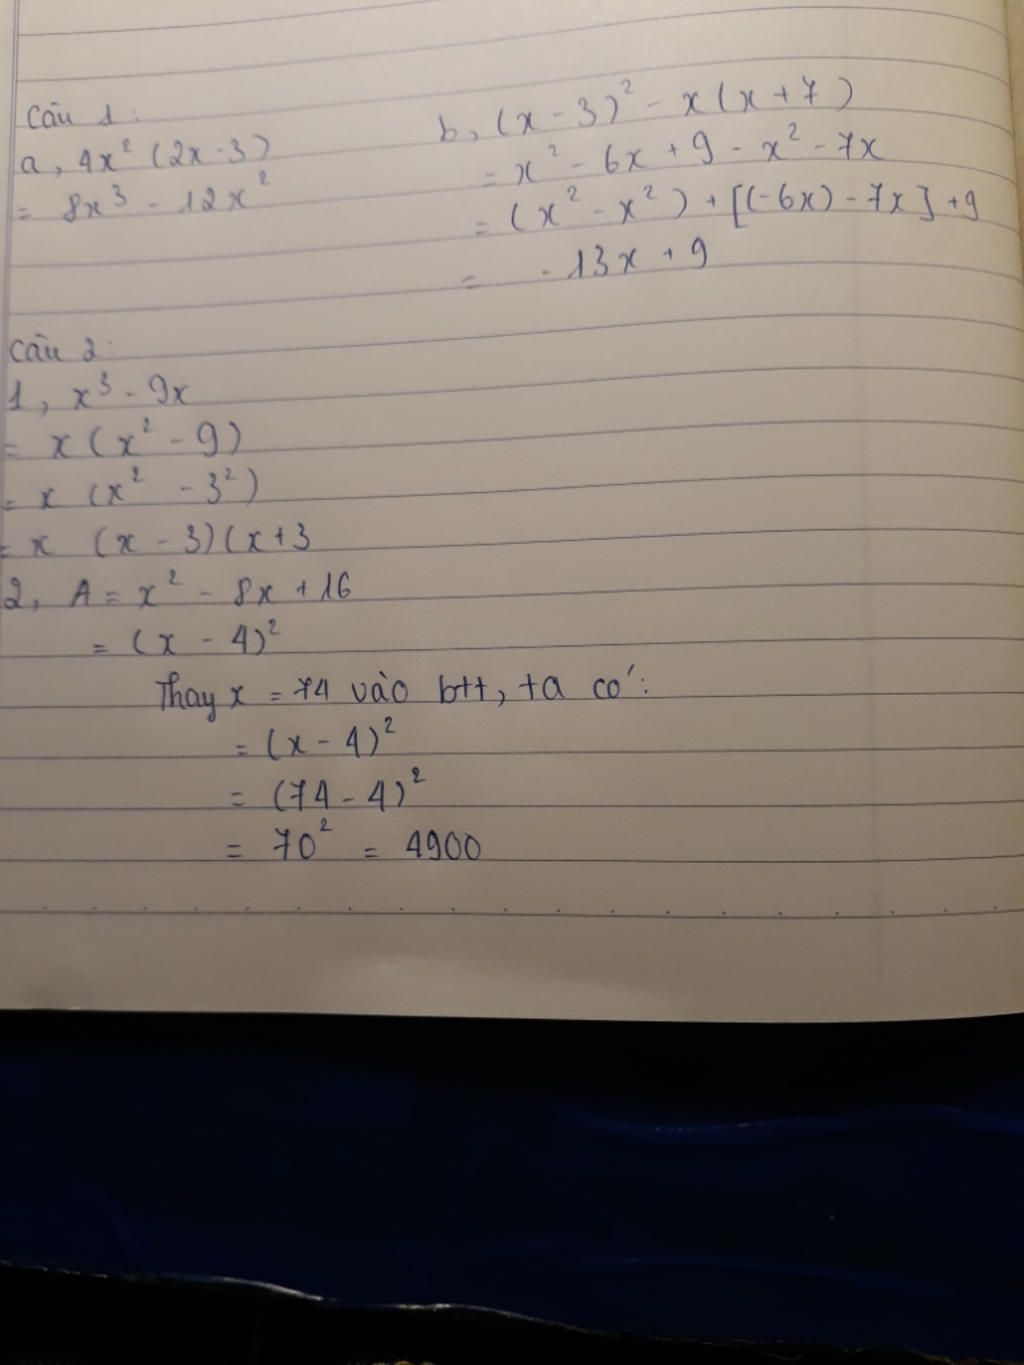 Câu 1:
a, 4x² (2x-3)
= 8x³ - 12x²
b, (x - 3)² - x(x+7)
= x² - 6x + 9 - x² - 7x
= (x² - x²) + [(-6x) - 7x] + 9
= - 13x + 9
Câu 2:
1, x³ - 9x
= x (x² - 9)
= x (x² - 3²)
= x (x - 3)(x+3
2, A = x² - 8x + 16
= (x - 4)²
Thay x = 74 vào btt, ta có:
= (x - 4)²
= (74 - 4)²
= 70² = 4900